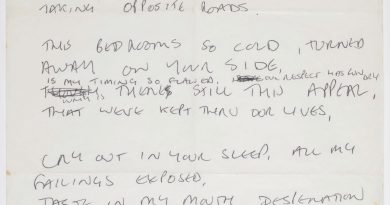 TAKING OPPOSITE ROADS.
THIS BEDROOMS SO COLD, TURNED
AWAY ON YOUR SIDE,
IS MY TIMING SO FLAWED, OUR RESPECT HAS RUN DRY
THERES STILL THIS APPEAL,
WHY IS
THAT WE'VE KEPT THRU OUR LIVES,
CRY OUT IN YOUR SLEEP, ALL MY
FAILINGS EXPOSED,
TASTE IN MY MOUTH DESPERATION